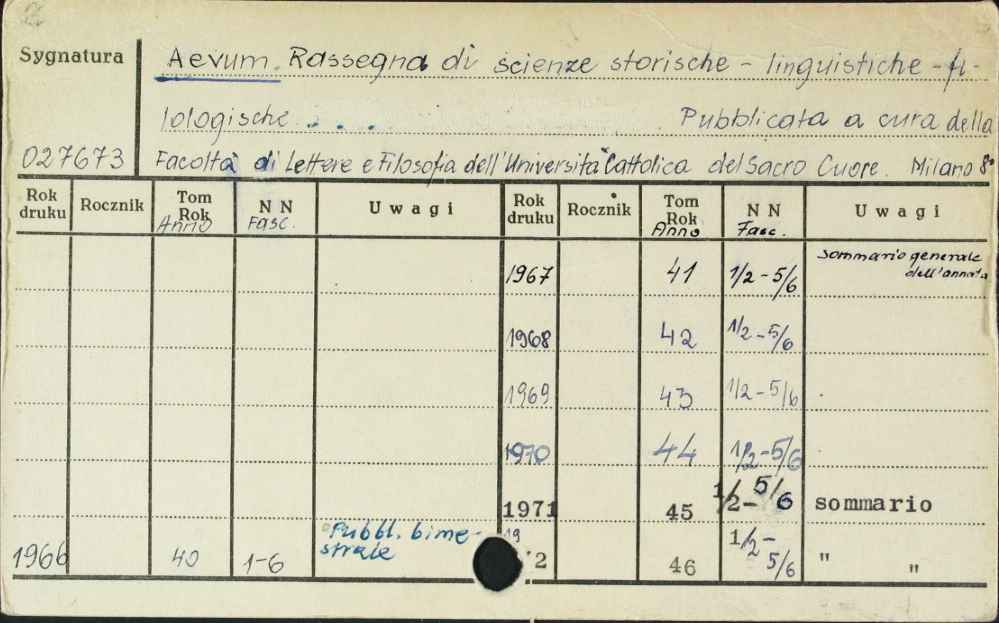 Sygnatura
Aevum. Rassegna di scienze storische - linguistiche - fi-
lologische . . . . Pubblicata a cura della
027673 Facoltà di Lettere e Filosofia dell'Università Cattolica del Sacro Cuore. Milano 8°
Rok druku Rocznik Tom Rok Anno N N Fasc. Uwagi Rok druku Rocznik Tom Rok Anno N N Fasc. Uwagi
1967 41 1/2-5/6 sommario generale dell'annata
1968 42 1/2-5/6
1969 43 1/2-5/6
1970 44 1/2-5/6
1971 45 1/2-5/6 sommario
1966 40 1-6 Pubbl. bimestrale 19 2 46 1/2-5/6 " "